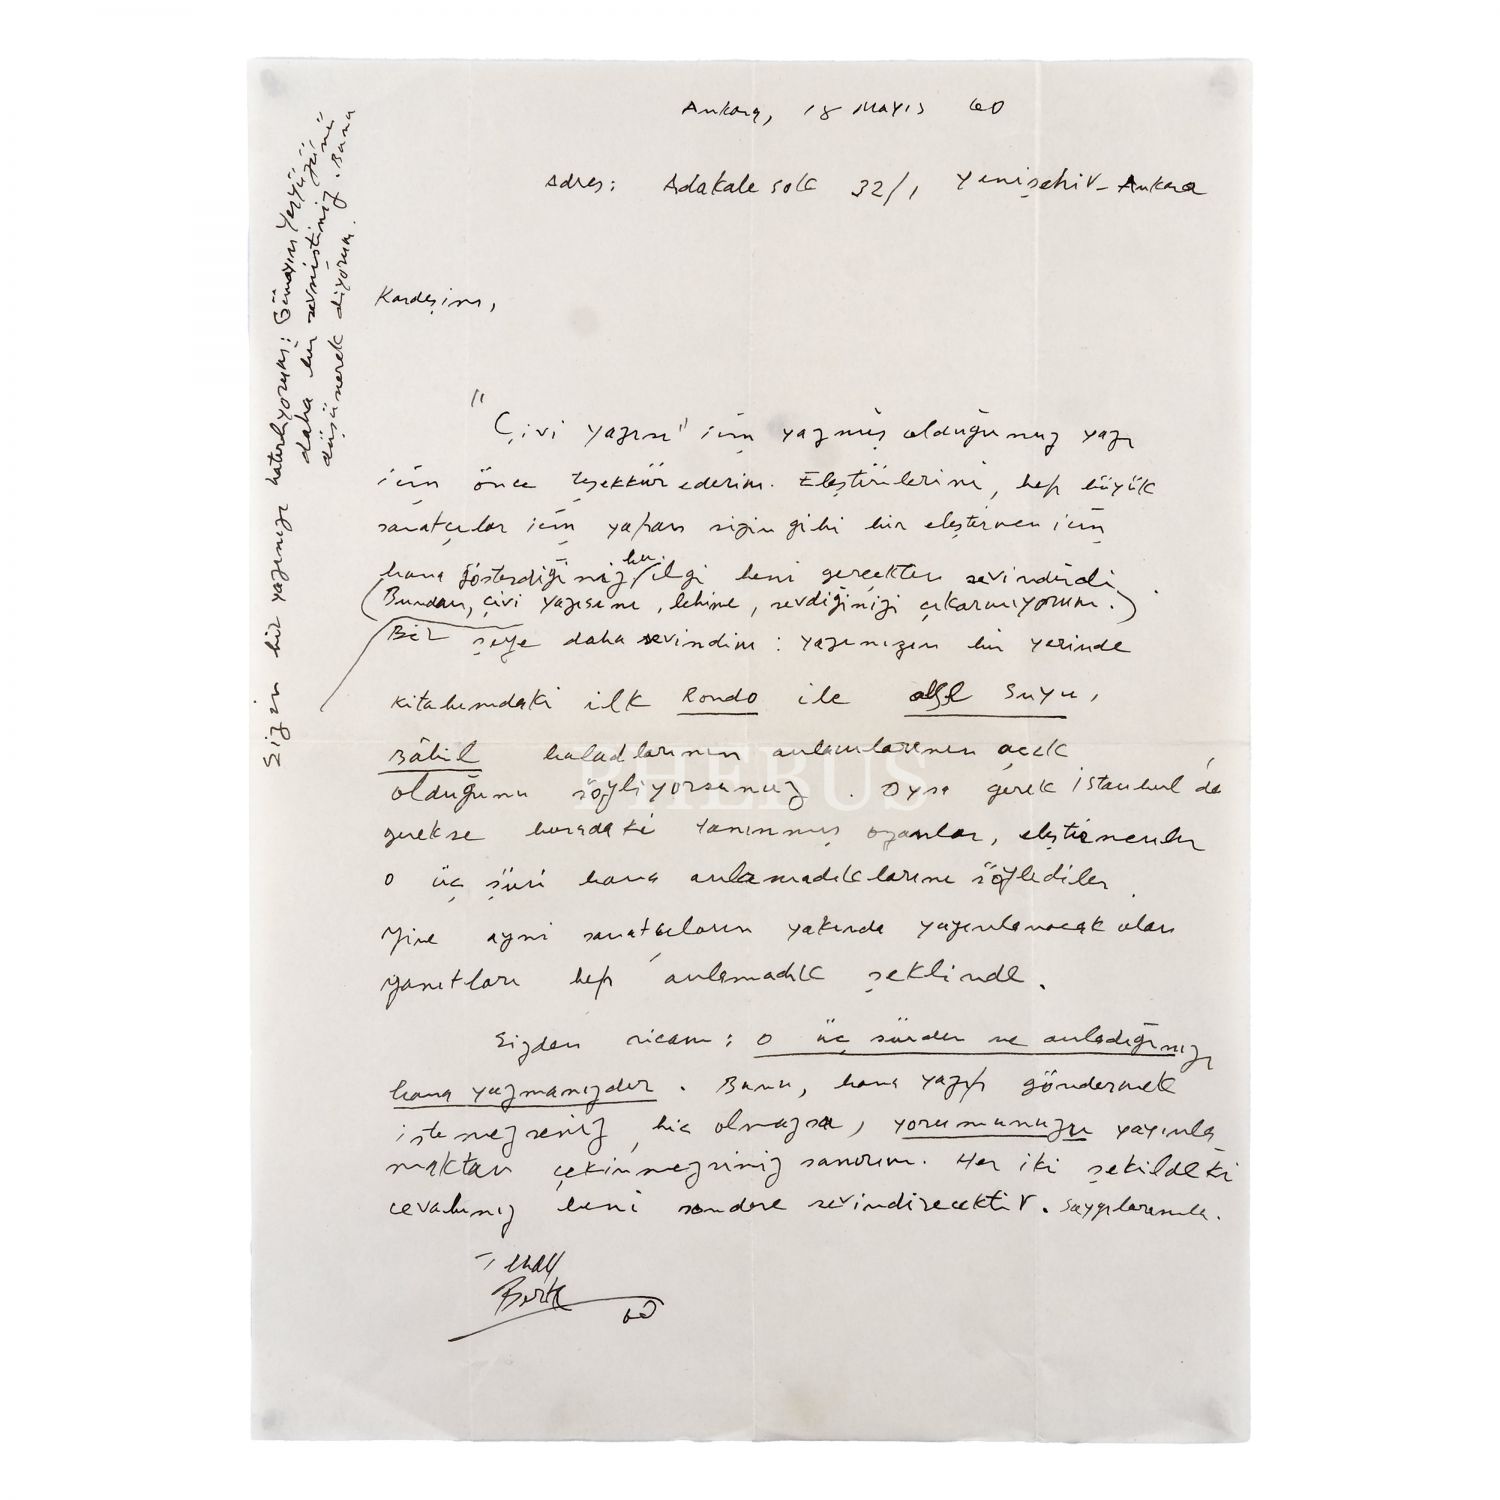 Ankara, 18 Mayıs 60
Adres: Adakale sok 32/1 Yenişehir - Ankara
Kardeşim,
"Çivi yazısı" için yazmış olduğunuz yazı
için önce teşekkür ederim. Eleştirilerini, hep büyük
sanatçılar için yapan sizin gibi bir eleştirmen için
bana gösterdiğiniz bu ilgi beni gerçekten sevindirdi.
(Bundan, çivi yazısını, lehine, sevdiğinizi çıkarmıyorum.)
Bir şeye daha sevindim: yazınızın bir yerinde
kitabımdaki ilk Rondo ile Suyu,
Bâbil baladlarının anlamlarının açık
olduğunu söylüyorsunuz. Oysa gerek İstanbul'da
gerekse buradaki tanınmış ozanlar, eleştirmenler
o üç şiiri bana anlamadıklarını söylediler.
Yine aynı sanatçıların yakında yayınlanacak olan
yanıtları hep anlamadık şeklinde.
Sizden ricam: o üç şiirden ne anladığınızı
bana yazmanızdır. Bunu, bana yazıp göndermek
istemezseniz, hiç olmazsa, yorumunuzu yayınla-
maktan çekinmezsiniz sanırım. Her iki şekildeki
cevabınız beni sevindirecektir. Saygılarımla.
İlhan
Berk
60
Sizin bir yazınızı hatırlıyorum: Günaydın Yeryüzünü
daha bir sevmiştiniz. Bunu
düşünerek diyorum.
PHEBUS